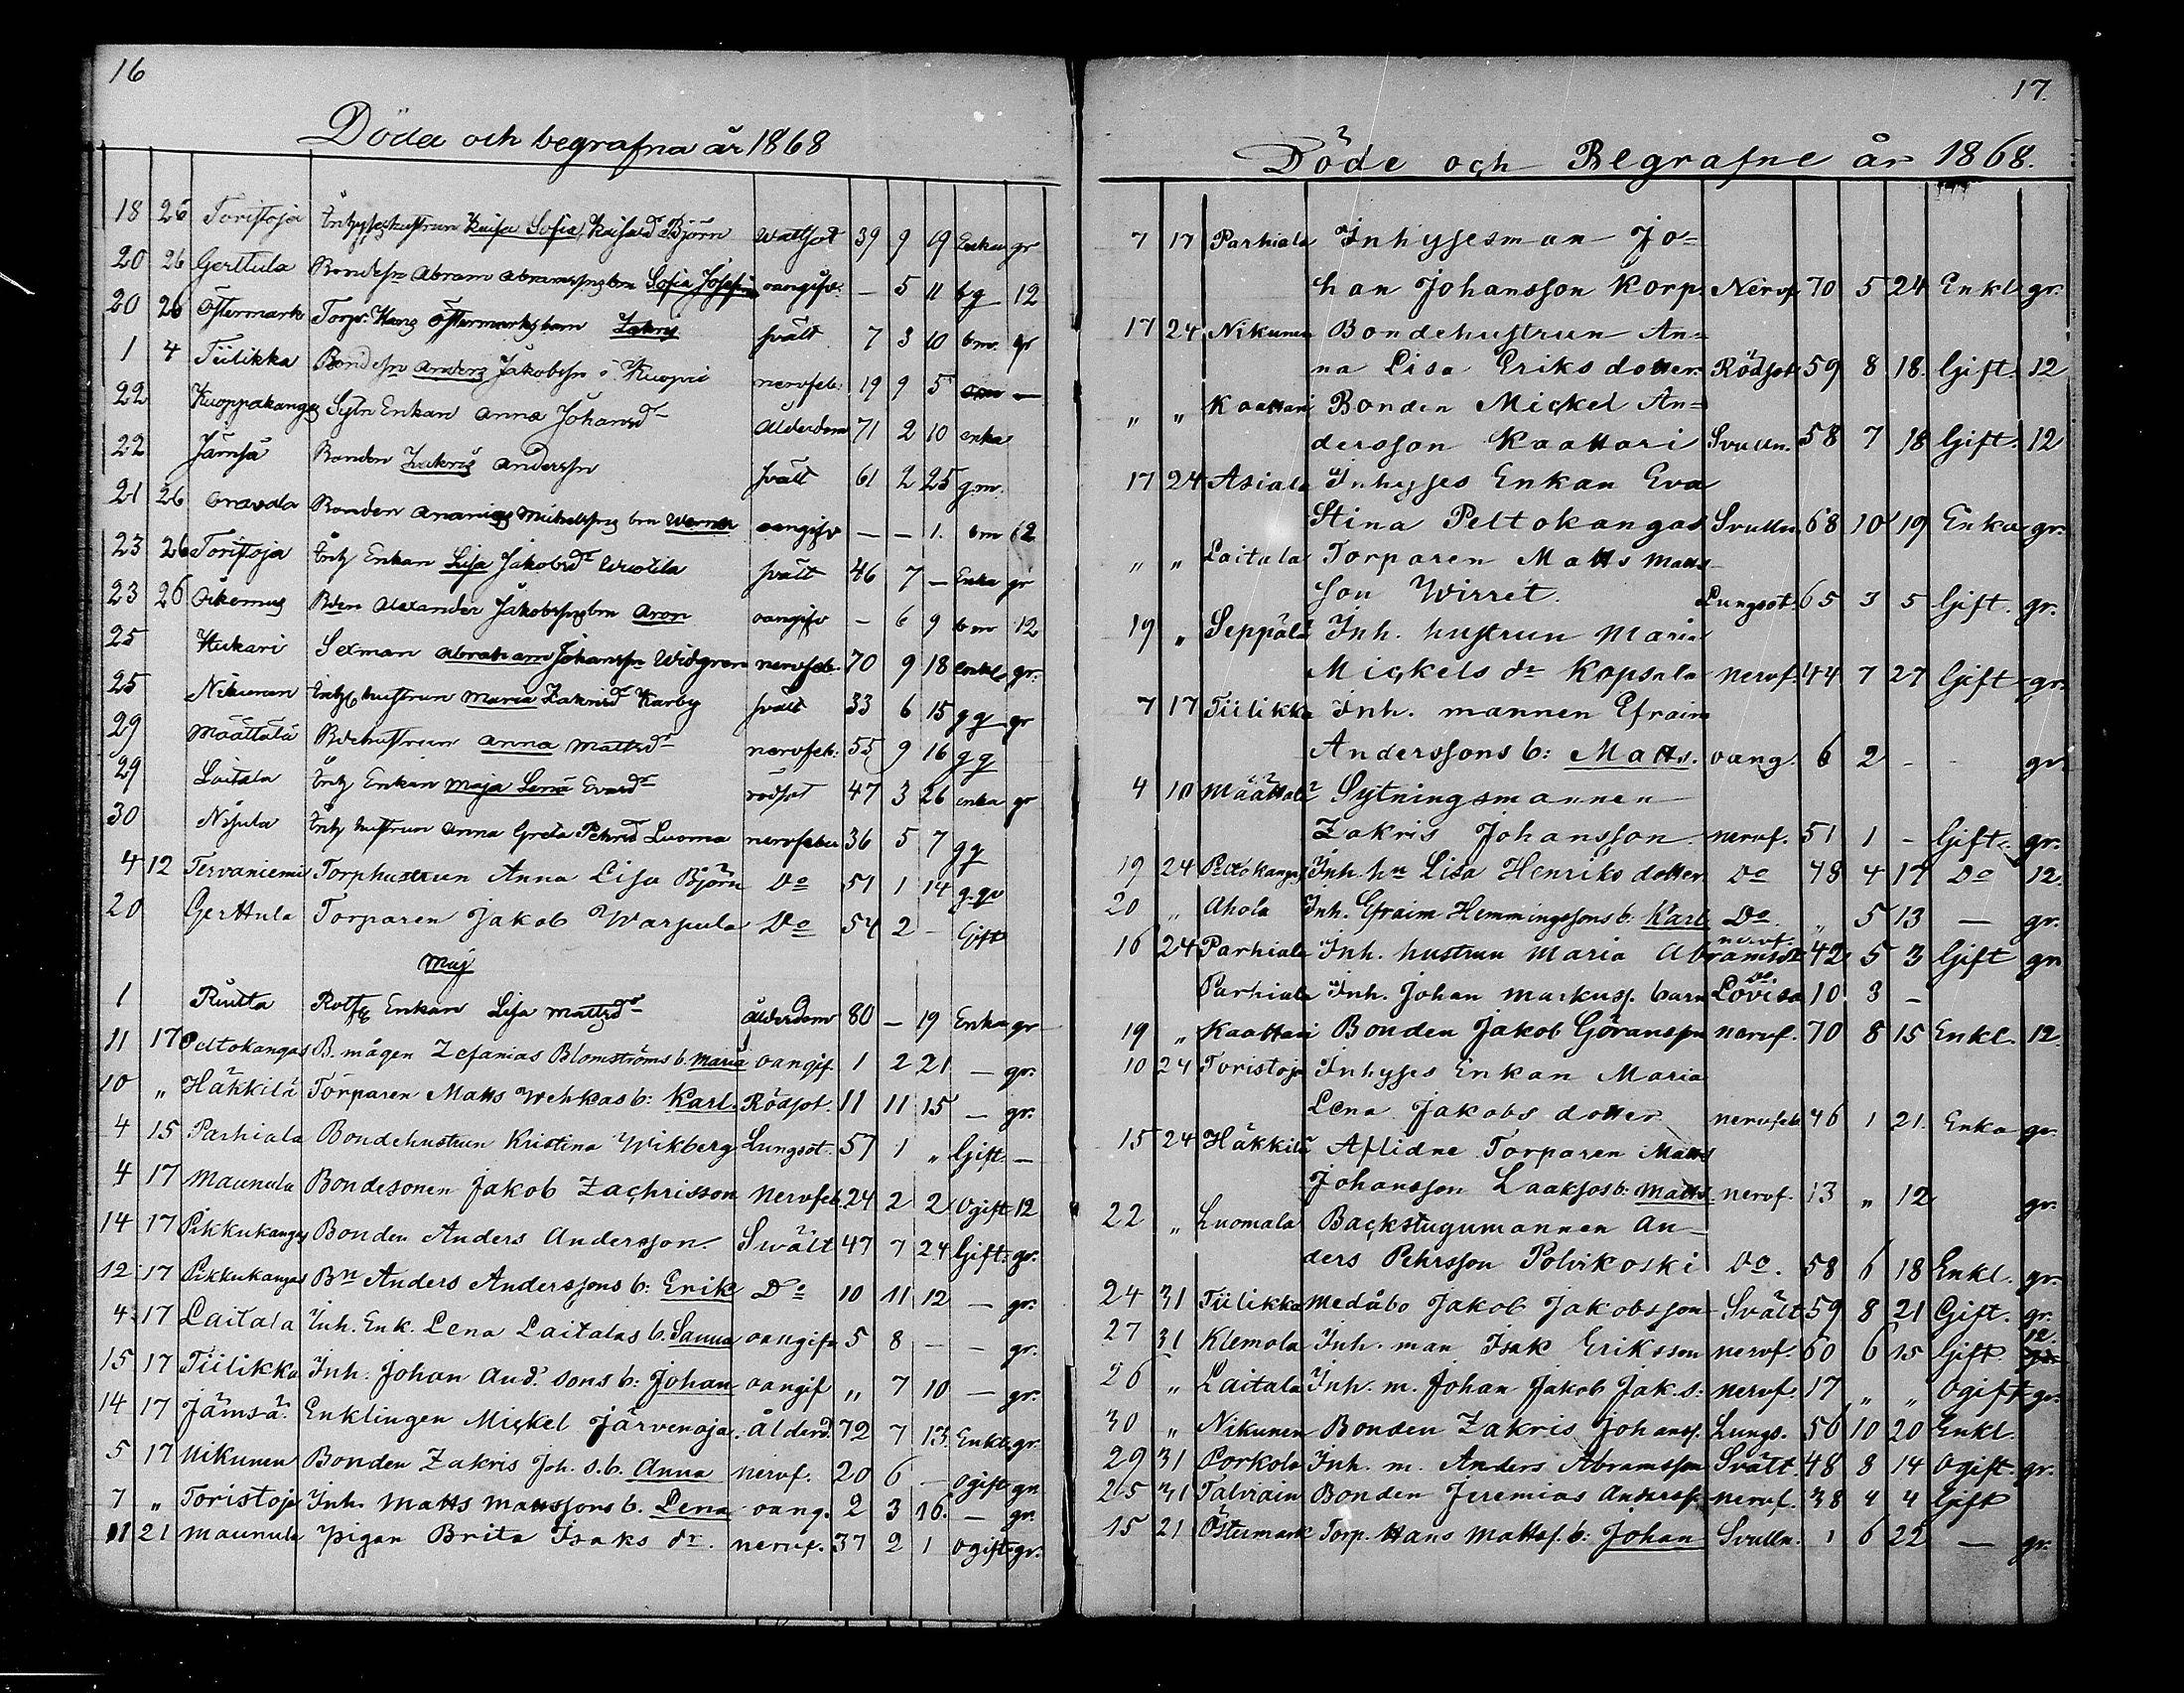 16
Döda och begrafna år 1868
18 26 Toristoja Inhyseshustrun Kaisa Sofia Björn Wattsot 39 9 19 Enka gr
20 26 Gerttula Bondesn Abram Abramssons brn Sofia Josefina oangifv. — 5 11 12
20 26 Östermark Torp. Hans Östermarks barn Zakris svält 7 3 10 gr
1 4 Tiilikka Bondesn Anders Jakobssn i Kuopio nervfeb. 19 9 5 —
22 Kuoppakangas Sytn Enkan Anna Johansdr Ålderdom 71 2 10 enka
22 Jämsä Bonden Zakris Anderssn svält 61 2 25 gm.
21 26 Bonden Ananias Michelssns brn oangifv — — 1. 12
23 26 Toristoja Inh Enkan Lisa Jakobsdr svält 46 7 — Enka gr
23 26 Åkernus Bden Alexander Jakobssns brn Aron oangifv — 6 9 12
25 Hukari Sexman Abraham Johanssn Widgren nervfeb. 70 9 18 enkl. gr.
25 Nikunen Inh hustrun Maria Zakrisdr Karby svält 33 6 15 gq gr
29 Määttälä Bdehustrun Anna Mattsdr nervfeb. 55 9 16 gq
29 Laitala Inh Enkan Maja Lena Evardr rödsot 47 3 26 enka gr
30 Nisula Inh hustrun Anna Greta Pehrsdr Luoma nervfeber 36 5 7 gq
4 12 Tervaniemi Torphustrun Anna Lisa Björn Do 51 1 14 g.qv
20 Gerttula Torparen Jakob Warpula Do 54 2 - Gift
Maj
1 Ruutta Enkan Lisa Mattsdr Ålderdom 80 — 19 Enka gr
11 17 Peltokangas B. mågen Zefanias Blomströms b. Maria oangif. 1 2 21 — gr.
10 „ Häkkilä Torparen Matts Wehkas b: Karl. Rödsot. 11 11 15 — gr.
4 15 Parhiala Bondehustrun Kristina Wikberg Lungsot. 57 1 „ Gift. —
4 17 Maunula Bondesonen Jakob Zachrisson Nervfeb. 24 2 2 Ogift 12
14 17 Pikkukangas Bonden Anders Andersson. Swält 47 7 24 Gift. gr.
12 17 Pikkukangas Bn Anders Anderssons b: Erik Do 10 11 12 — gr.
4 17 Laitala Inh. Enk. Lena Laitalas b. Sanna oangifv 5 8 — — gr.
15 17 Tiilikka Inh. Johan And. sons b: Johan oangif „ 7 10 — gr.
14 17 Jämsä. Enklingen Mickel Järvenoja. ålderd. 72 7 13. Enkl. gr.
5 17 Nikunen Bonden Zakris Joh. s. b. Anna nervf. 20 6 — ogift gr.
7 „ Toristoja Inh. Matts Mattssons b. Lena oang. 2 3 16. — gr.
11 21 Maunula pigan Brita Isaks dr. nervf. 37 2 1 ogift. gr.
17.
Döde och Begrafne år 1868.
7 17 Parhiala Inhysesman Jo=
han Johansson Korp. Nervf 70 5 24 Enkl. gr.
17 24 Nikunen Bondehustrun An=
na Lisa Eriks dotter. Rödsot 59 8 18. Gift. 12
„ „ Kaattari Bonden Mickel An=
dersson Kaattari Svulln. 58 7 18 Gift. 12
17 24 Asiala Inhyses Enkan Eva
Stina Peltokangas Svulln. 68 10 19 Enka gr.
„ „ Laitala Torparen Matts Matts
son Wirret. Lungsot. 65 3 5 Gift. gr.
19 „ Seppälä Inh. hustrun Maria
Mickels dr Kapsala nervf. 44 7 27 Gift gr.
7 17 Tiilikka Inh. mannen Efraim
Anderssons b: Matts. oang. 6 2 - - gr.
4 10 Määttälä Sytningsmannen
Zakris Johansson nervf. 51 1 - Gift. gr.
19 24 Peltokangas Inh. hn Lisa Henriks dotter Do 48 4 17 Do 12.
20 „ Ahola Inh. Efraim Hemmingssons b: Karl Do. „ 5 13 — gr.
16 24 Parhiala Inh. hustrun Maria Abramsdr nervf. 42 5 3 Gift gr
Parhiala Inh. Johan Markuss. barn Lovisa Do. 10 3 -
19 „ Kaattari Bonden Jakob Göransson nervf. 70 8 15 Enkl. 12.
10 24 Toristoja Inhyses Enkan Maria
Lena Jakobs dotter. nervfeb 46 1 21. Enka gr.
15 24 Häkkilä Aflidne Torparen Matts
Johansson Laaksos b: Matts nervf. 13 „ 12 gr.
22 „ Luomala Backstugumannen An=
ders Pehrsson Polvikoski Do. 58 6 18 Enkl. gr.
24 31 Tiilikka Medåbo Jakob Jakobsson Svält 59 8 21 Gift. gr.
27 31 Klemola Inh. man Isak Eriksson nervf. 60 6 15 Gift. 12.
26 „ Laitala Inh. m. Johan Jakob Jak. s: nervf. 17 „ „ Ogift gr.
30 „ Nikunen Bonden Zakris Johanss. Lungs. 56 10 20 Enkl.
29 31 Porkola Inh. m. Anders Abramsson Svält. 48 8 14 Ogift. gr.
25 31 Talvrain Bonden Jeremias Anderss. nervf. 38 4 4 Gift
15 21 Östermark Torp. Hans Mattss. b: Johan Svulln. 1 6 22 — gr.